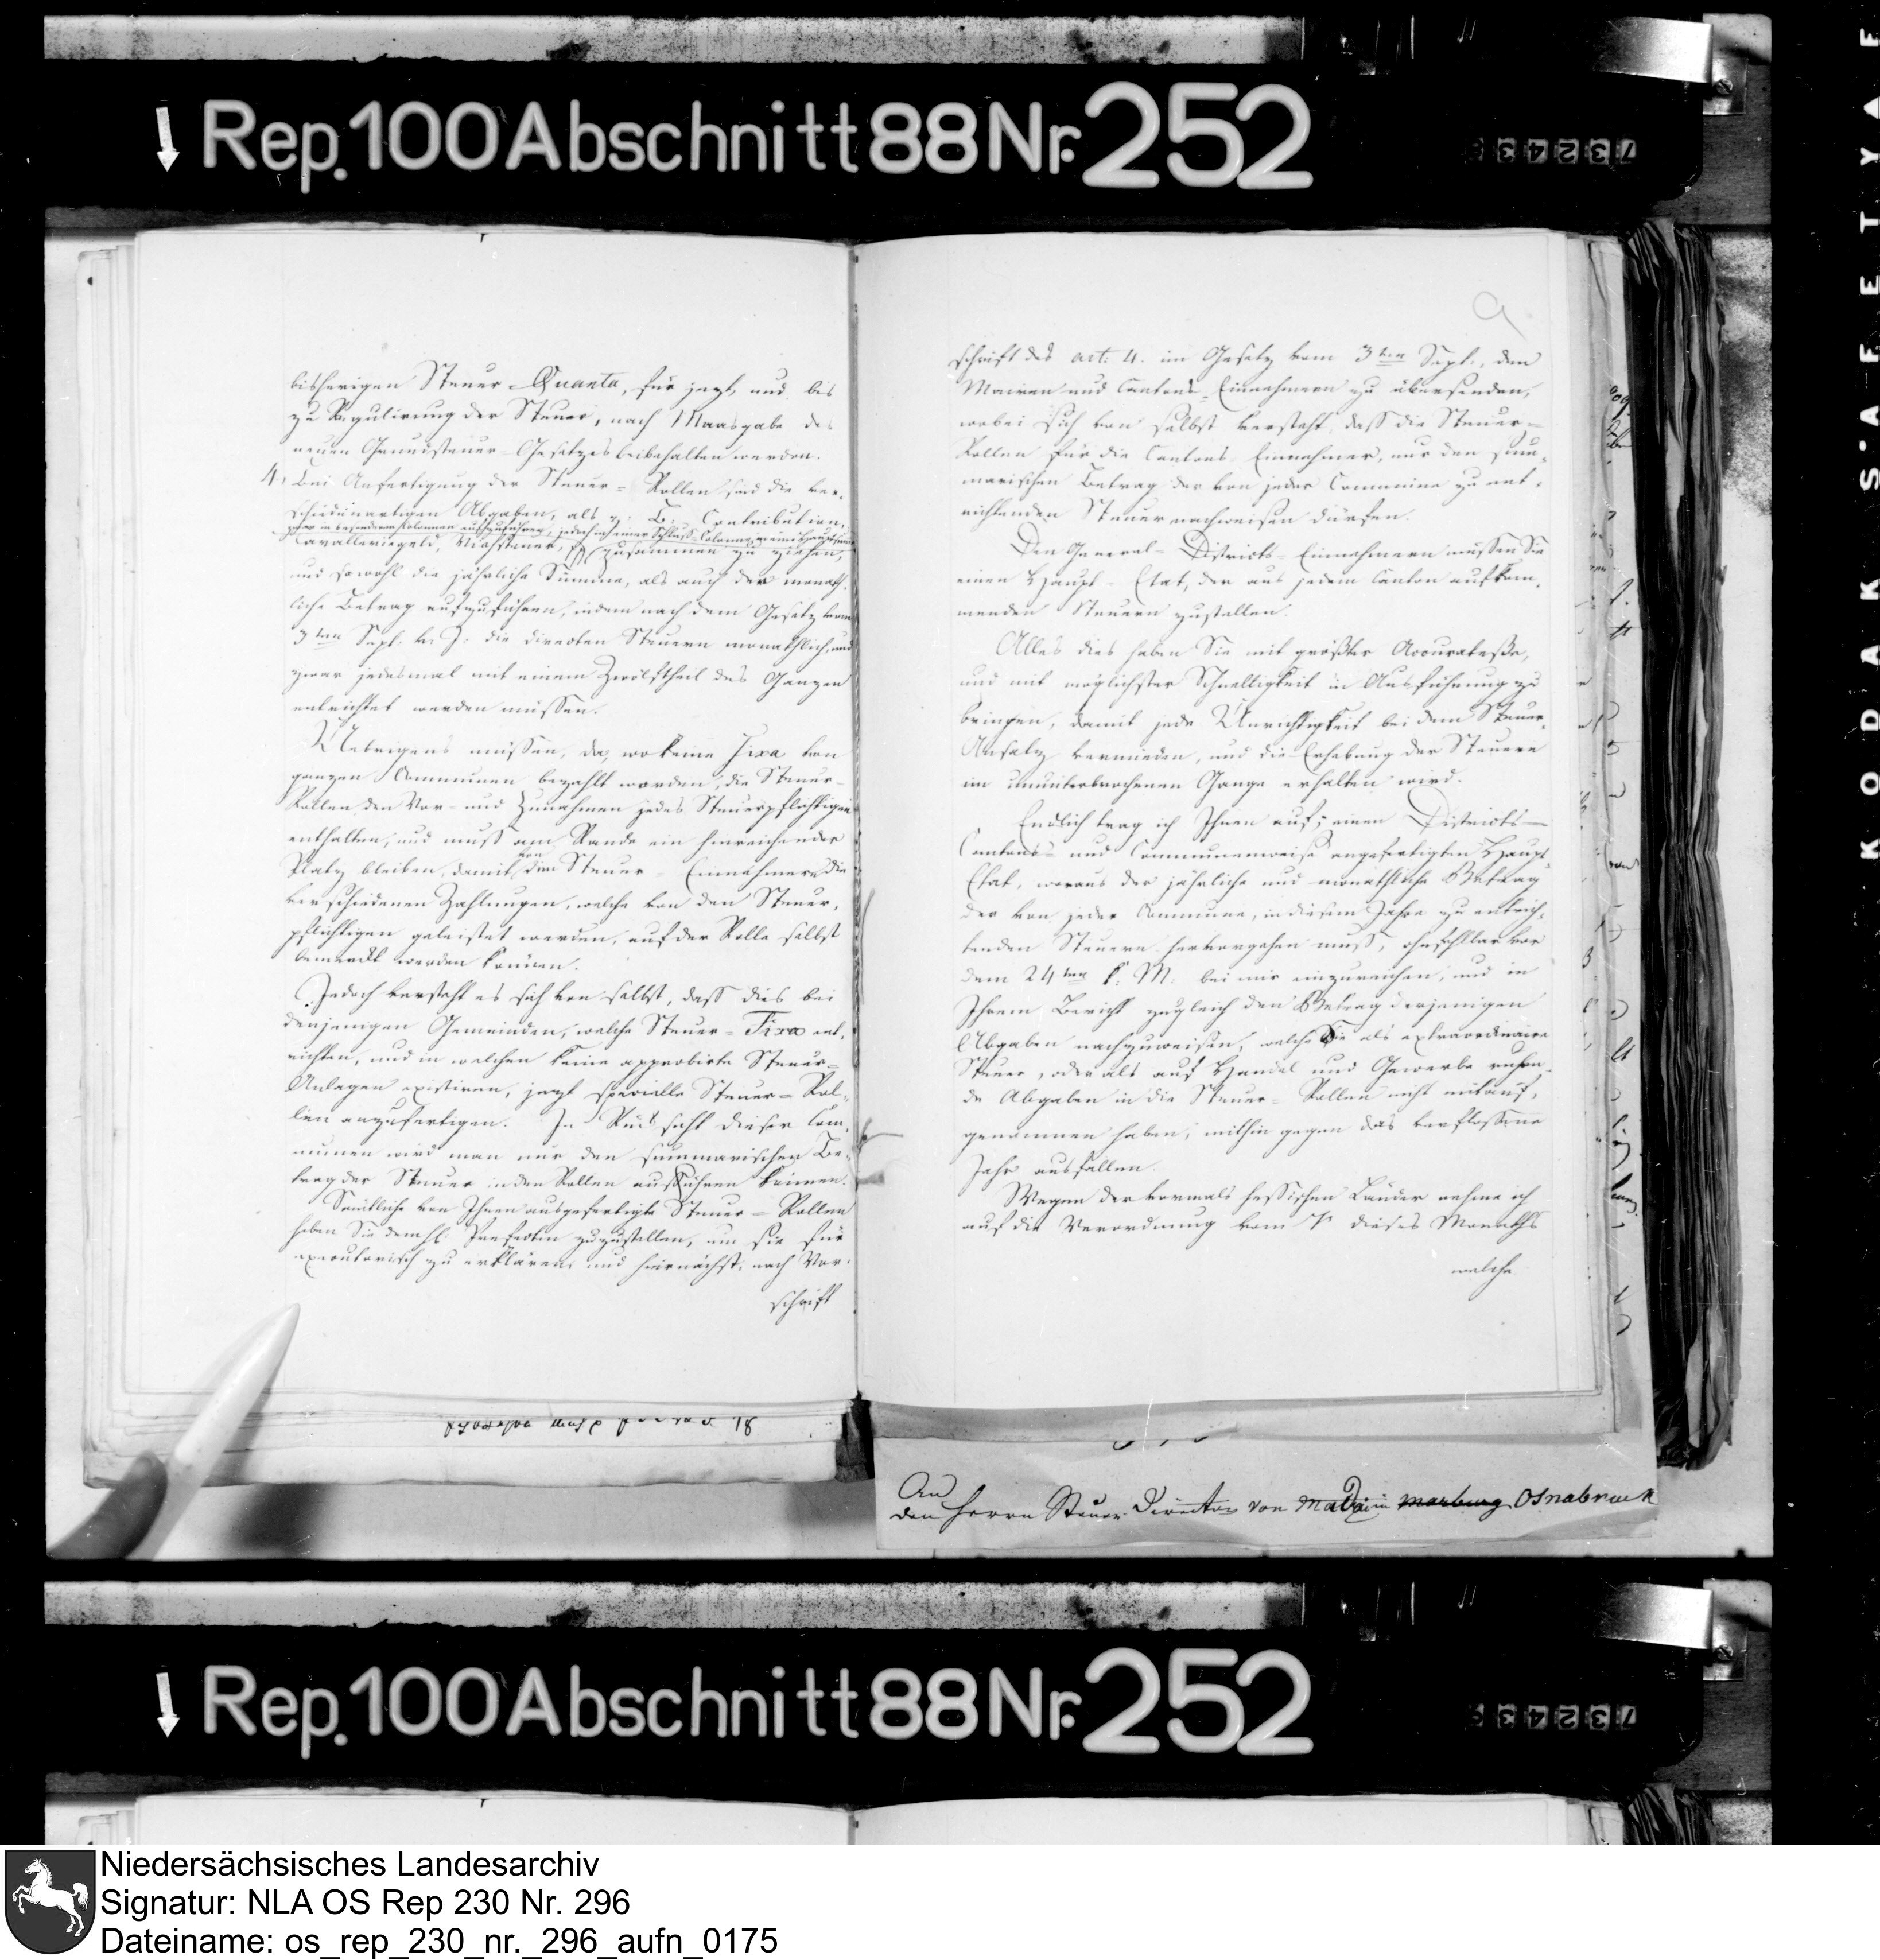 Rep. 100 Abschnitt 88 Nr. 252
bisherigen Steuer-Quanta, für jezt, und bis
zu Regulirung der Steuer, nach Maasgabe des
neuen Grundsteuer-Gesetzes beibehalten werden.
4, Bei Anfertigung der Steuer-Rollen sind die ver-
schiedenartigen Abgaben, als z. B. Contribution,
zwar in besondern Kolonnen aufzuführen, jedoch in einer Schluß-Colonne
Cavalleriegeld, Viehsteuer, zusammen zu ziehen,
und sowohl die jährliche Summe, als auch der monath-
liche Betrag aufzuführen, indem nach dem Gesetz vom
3ten Sept. v. J. die directen Steuern monathlich, und
zwar jedesmal mit einem Zwölftheil des Ganzen
entrichtet werden müssen.
Uebrigens müssen, da, wo keine Fixa von
ganzen Communen bezahlt worden, die Steuer-
Rollen den Vor- und Zunahmen jedes Steuerpflichtigen
enthalten, und muß am Rande ein hinreichender
Platz bleiben, damit von den Steuer-Einnehmern die
verschiedenen Zahlungen, welche von den Steuer-
pflichtigen geleistet werden, auf der Rolle selbst
bemerkt werden können.
Jedoch versteht es sich von selbst, daß dies bei
denjenigen Gemeinden, welche Steuer-Fixa ent-
richten, und in welchen keine approbirte Steuer-
Anlagen existiren, jezt specielle Steuer-Rol-
len anzufertigen. In Rücksicht dieser Com-
munen wird man nur den summarischen Be-
trag der Steuer in den Rollen aufführen können.
Sämtliche von Ihnen ausgefertigte Steuer-Rollen
haben Sie dem H. Praefecten zuzustellen, um sie für
executorisch zu erklären, und hiernächst, nach Vor-
schrift
9
schrift des art: 4. im Gesetz vom 3ten Sept., den
Mairen und Cantons-Einnehmern zu übersenden,
wobei sich von selbst versteht, daß die Steuer-
Rollen für die Cantons-Einnehmer, nur den sum-
marischen Betrag der von jeder Commune zu ent-
richtenden Steuer nachweisen dürfen.
Den General-Districts-Einnehmern müssen Sie
einen Haupt-Etat, der aus jedem Canton aufkom-
menden Steuern zustellen.
Alles dies haben Sie mit größter Accuratesse,
und mit möglichster Schnelligkeit in Ausführung zu
bringen, damit jede Unrichtigkeit bei dem Steuer-
Ansatz vermieden, und die Erhebung der Steuern
im ununterbrochenen Gange erhalten wird.
Endlich trag ich Ihnen auf, einen Districts-
Cantons- und Communenweise angefertigten Haupt-
Etat, woraus der jährliche und monathliche Betrag
der von jeder Commune, in diesem Jahre zu entrich-
tenden Steuern hervorgehen muß, ohnfehlbar vor
dem 24ten k. M. bei mir einzureichen, und in
Ihrem Bericht zugleich den Betrag derjenigen
Abgaben nachzuweisen, welche Sie als extraordinaire
Steuer, oder als auf Handel und Gewerbe ruhen-
de Abgaben in die Steuer-Rollen nicht mit auf-
genommen haben, mithin gegen das verflossene
Jahr ausfallen.
Wegen der vormals hessischen Länder nehme ich
auf die Verordnung vom 7n dieses Monaths
welche
An
den Herrn Steuer Director von Madai in Marburg Osnabrück
Rep. 100 Abschnitt 88 Nr. 252
KODAK SAFETY
Niedersächsisches Landesarchiv
Signatur: NLA OS Rep 230 Nr. 296
Dateiname: os_rep_230_nr._296_aufn_0175